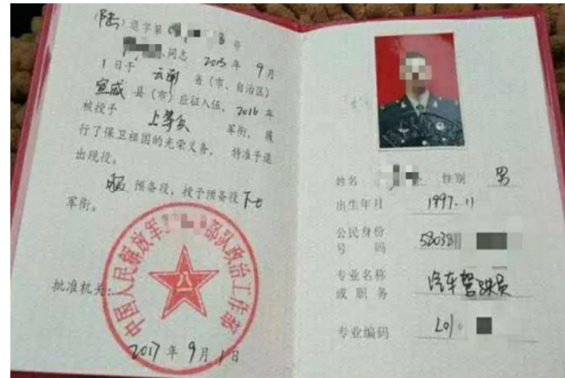 （陆）退字第0 8 号
同志 2015年9月
1日于 云南 省（市、自治区）
宣威 县（市）应征入伍，2016年
被授予 上等兵 军衔，履
行了保卫祖国的光荣义务，特准予退
出现役。
服 预备役，授予预备役 下士
军衔。
中国人民解放军 部队政治工作部
八一
批准机关：
2017年9月1日
姓名 性别 男
出生年月 1997.11
公民身份
号码
专业名称 汽车驾驶员
或职务
专业编码